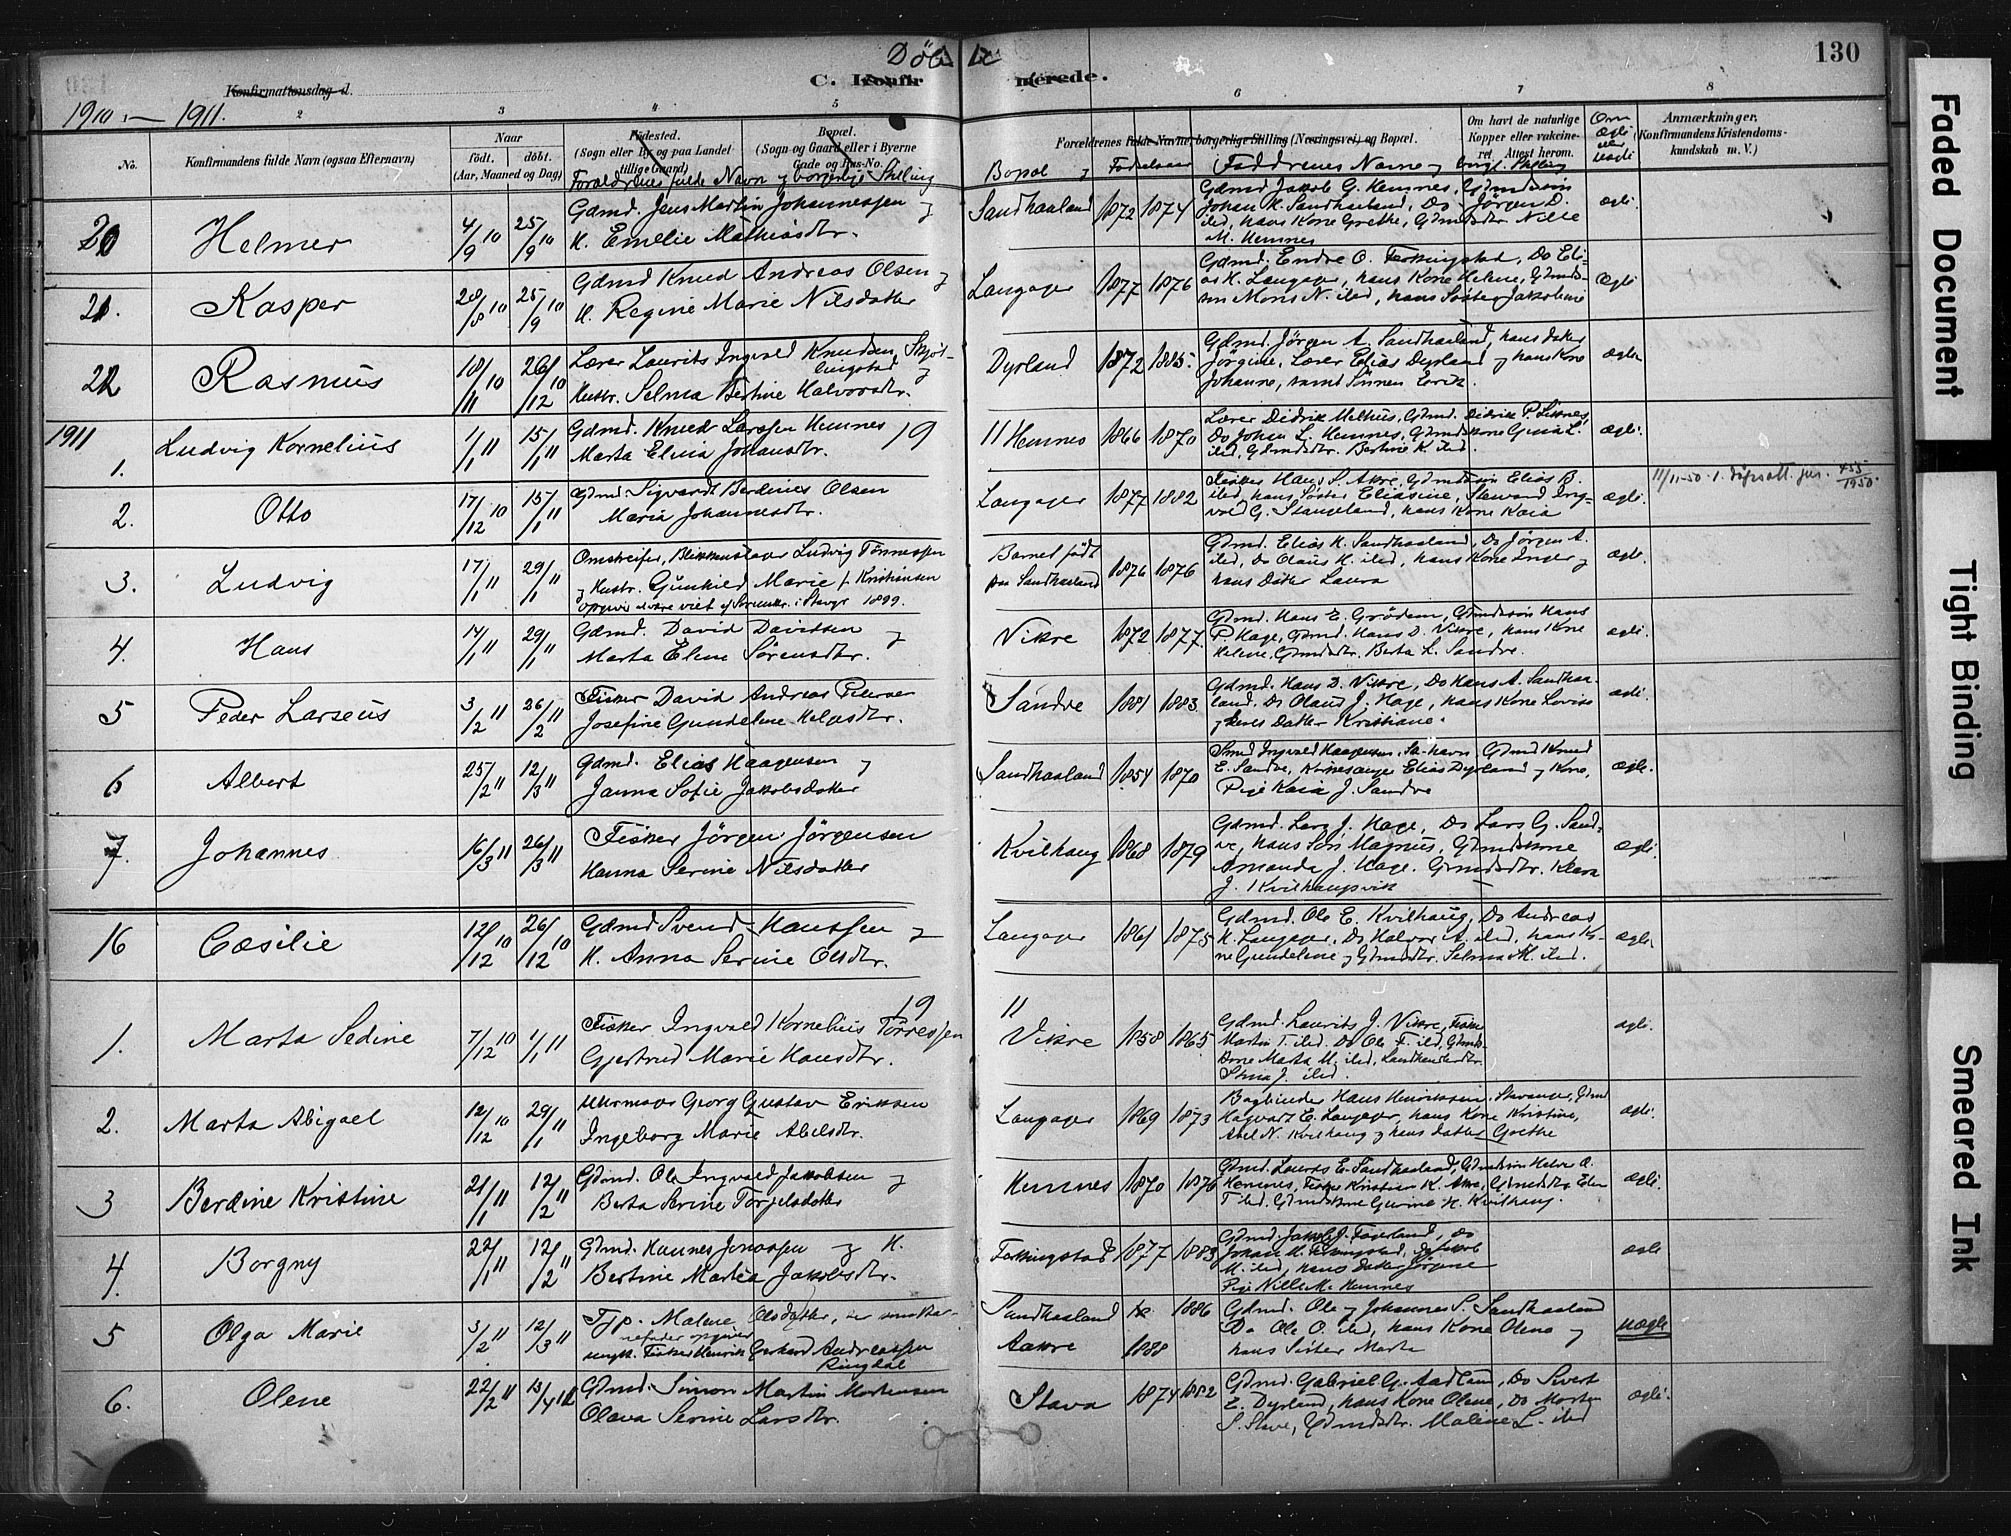 Døbte
C. Konfirmerede.
130
Konfirmationsdag d.
1910 — 1911.
2 3 4 5 6 7 8
No.
Konfirmandens fulde Navn (ogsaa Efternavn)
Naar
født. døbt.
(Aar, Maaned og Dag)
Fødested.
(Sogn eller By og paa Landet tillige Gaard)
Bopæl.
(Sogn og Gaard eller i Byerne Gade og Hus-No.
Forældrenes fulde Navn og borgerlige Stilling
Forældrenes fulde Navne, borgerlige Stilling (Næringsvei) og Bopæl.
Bopæl og Fødselsaar Faddrenes Navne og borgl. Stilling
Om havt de naturlige Kopper eller vakcineret. Attest herom.
Om ægte eller uægte
Anmærkninger.
(Konfirmandens Kristendoms-kundskab m. V.)
20 Helmer 4/9 10 25/9 10 Gdmd. Jens Martin Johannessen og
K. Emelie Mathiasdtr.
Sandhaaland 1872 1874 Gdmd Jakob G. Hemnes, Gdmdssøn
Johan K. Sandhaaland, Do Jörgen D.
ibd, hans Kone Grethe, Gdmdsdtr. Nille
M. Hemnes
ægte
21. Kasper 28/8 10 25/9 10 Gdmd Knud Andreas Olsen og
K. Regine Marie Nilsdatter
Langager 1877 1876 Gdmd. Endre O. Ferkingstad, Do Eli-
as K. Langager, hans Kone Helene, Gdmds-
søn Mons N. ibd, hans Søster Jakobine
ægte
22 Rasmus 18/11 10 26/12 10 Lærer Laurits Ingvald Knudsen Skjöl-
lingstad og
Hustr. Selma Bertine Halvorsdtr.
Dyrland 1872 1885. Gdmd. Jörgen A. Sandhaaland, hans datter
Jörgine, Lærer Elias Dyrland og hans Kone
Johanne, samt Sönnen Eirik.
ægte
1911
1. Ludvig Kornelius 1/1 11 15/1 11 Gdmd. Knud Larssen Hemnes 19
Marta Elina Johansdtr.
11 Hemnes 1866 1870 Lærer Didrik Melhus, Gdmd. Didrik P. Liknes
Do Johan L. Hemnes, Gdmdskone Gina L.
ibd, Gdmdsdtr. Bertine K. ibd.
ægte.
2. Otto 17/12 10 15/1 11 Gdmd. Sigvardt Berdines Olsen
Maria Johannesdtr.
Langager 1877 1882 Fisker Hans S. Akre, Gdmdssøn Elias B.
ibd, hans Søster Eliasine, Steward Ing-
vald G. Stangeland, hans Kone Kaia
ægte.
11/11-50. 1. dåpsatt. jnr. 455/1950.
3. Ludvig 17/1 11 29/1 11 Omstreifer, Blikkenslager Ludvig Tönnessen
og Hustr. Gunhild Marie f. Kristiansen
opgivet være viet af Sorenskr. i Stavgr 1899.
Barnet født
paa Sandhaaland 1876 1876 Gdmd. Elias K. Sandhaaland, Do Jörgen A.
ibd, Do Olaus K. ibd, hans Kone Inger og
hans datter Laura
ægte
4. Hans 14/1 11 29/1 11 Gdmd. David Davidsen og
Marta Eline Sörensdtr.
Vikre 1872 1877. Gdmd. Hans E. Grödem, Gdmdssøn Hans
P. Hage, Gdmd. Hans D. Vikre, hans Kone
Helene, Gdmdsdtr. Berta L. Sandve.
ægte.
5 Peder Larseus 3/2 11 26/2 11 Fisker David Andreas Pederser
Josefine Gundelene Helgesdtr.
Sandve 1881 1883 Gdmd. Hans D. Vikre, Do Hans A. Sandhaa-
land. Do Olaus J. Hage, hans Kone Lovise
og deres datter Kristiane.
ægte
6 Albert 25/2 11 12/3 11 Gdmd. Elias Haagensen og
Janna Sofie Jakobsdatter
Sandhaaland 1854 1870 Smed Ingvald Haagensen, Sa-havn Gdmd Knud
E. Sandve, Kirkesanger Elias Dyrland og Kone,
Pige Kaia J. Sandve
ægte.
7. Johannes 16/3 11 26/3 11 Fisker Jörgen Jörgensen
Hanna Serine Nilsdatter
Kvilhaug 1868 1879 Gdmd. Lars J. Hage, Do Lars G. Sand-
ve, hans Sön Magnus, Gdmdskone
Amanda J. Hage. Gdmdsdtr. Klara
J. Kvilhaugsvik
ægte.
16 Cæsilie 12/12 10 26/12 10 Gdmd Svend Hanssen og
K. Anna Serine Olsdtr.
Langager 1861 1875 Gdmd. Ole E. Kvilhaug, Do Andreas
K. Langager, Do Halvor A. ibd, hans Ko-
ne Gundelene og Gdmdsdtr. Selma M. ibd.
ægte
1. Marta Sedine 7/12 10 1/1 11 19
Fisker Ingvald Kornelius Törressen
Gjertrud Marie Hansdtr.
11
Vikre 1858 1865 Gdmd. Laurits J. Vikre, Fisker
Martin T. ibd. Do Ole F. ibd, Gdmds-
kone Marta M. ibd, Landhandlerdtr.
Stina J. ibd.
ægte.
2. Marta Abigael 12/12 10 29/1 11 Uhrmager Georg Gustav Eriksen
Ingeborg Marie Abelsdtr.
Langager 1869 1873 Bogbinder Hans Henriksen, Stavanger, Gdmd
Hagvart E. Langager, hans Kone Kristine,
Abel N. Kvilhaug og hans datter Grethe
ægte.
3 Berdine Kristine 21/1 11 12/2 11 Gdmd. Ole Ingvald Jakobsen og
Berta Serine Torgelsdatter
Hemnes 1870 1876 Gdmd. Laurits E. Sandhaaland, Gdmdssøn Helge A.
Hemnes, Fisker Kristian K. Akre, Gdmdsdtr. Elen
T. ibd, Gdmdskone Gurine K. Kvilhaug.
ægte.
4 Borgny 22/1 11 12/2 11 Gdmd. Hannes Jonassen og K.
Bertine Martea Jakobsdtr.
Ferkingstad 1877 1883 Gdmd Jakob J. Föierland, Do
Johan M. Ferkingstad, Do Jakob
M. ibd, hans datter Jörgine
Pige Nille M. Hemnes
ægte
5 Olga Marie 3/2 11 12/3 11 Tjp. Malene Olsdatter, der som Bar-
nefader opgiver
ungk. Fisker Henrik Gerhard Andreassen
Ringdal
Sandhaaland 1886
Aakre 1888
Gdmd. Ole og Johannes S. Sandhaaland
Do Ole O. ibd, hans Kone Olena og
hans Søster Marta
uægte
6. Olene 22/2 11 13/4 11 Gdmd. Simon Martin Mortensen
Olava Serine Larsdtr.
Stava 1874 1882 Gdmd. Gabriel G. Aadland, Do Sivert
E. Dyrland, hans Kone Olene, Do Morten
S. Stave, Gdmdsdtr. Malene L. ibd
ægte.
Faded Document
Tight Binding
Smeared Ink